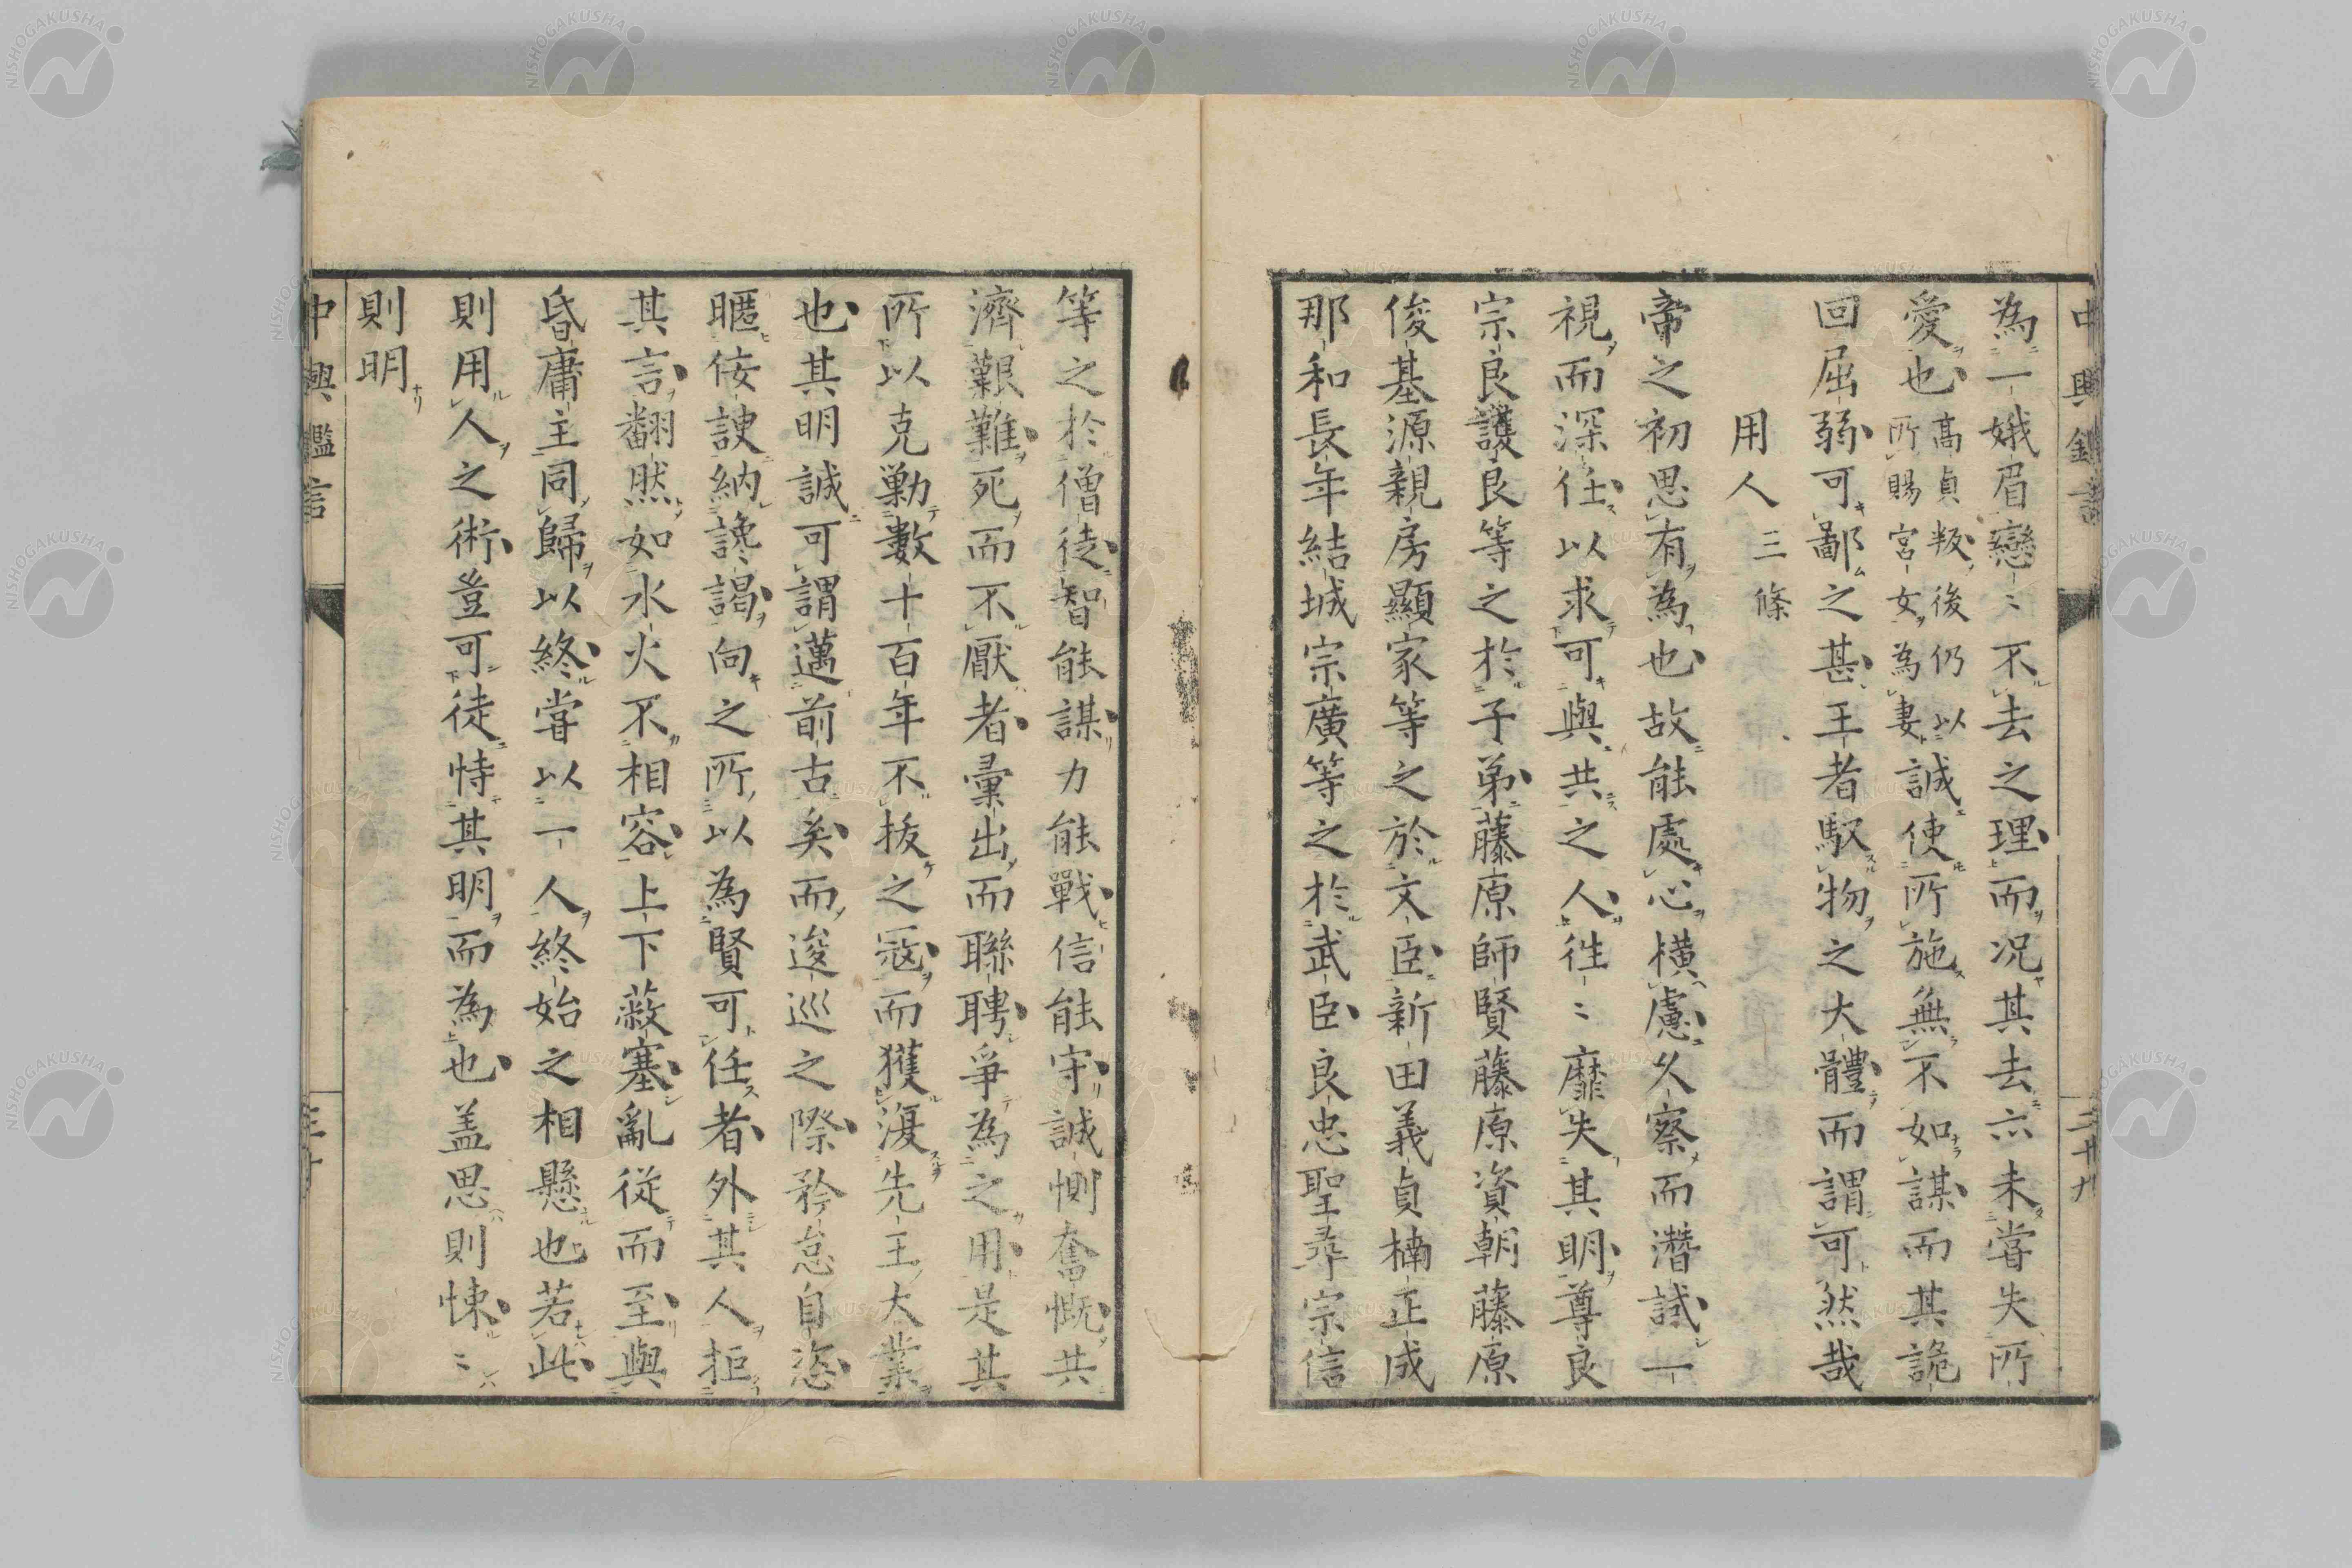 為一娥眉戀〻不去之理而況其去亦未嘗失所
愛也高貞叛後仍以所賜宮女為妻誠使所施無不如謀而其詭
回屈弱可鄙之甚王者馭物之大體而謂可然哉
用人三條
帝之初思有為也故能處心橫慮久察而潛試一
視而深任以求可與共之人往〻靡失其明尊良
宗良護良等之於子弟藤原師賢藤原資朝藤原
俊基源親房顯家等之於文臣新田義貞楠正成
那和長年結城宗廣等之於武臣良忠聖尋宗信
等之於僧徒智能謀力能戰信能守誠惻奮慨共
濟艱難死而不厭者彙出而聯聘爭為之用是其
所以克勦數十百年不拔之寇而獲復先王大業
也其明誠可謂邁前古矣而逡巡之際矜怠自恣
暱侫諛納讒謁向之所以為賢可任者外其人拒
其言翻然如水火不相容上下蔽塞亂從而至與
昏庸主同歸以終嘗以一人終始之相懸也若此
則用人之術豈可徒恃其明而為也盖思則悚〻
則明
中興鑑言
三十
中興鑑言
三廿九